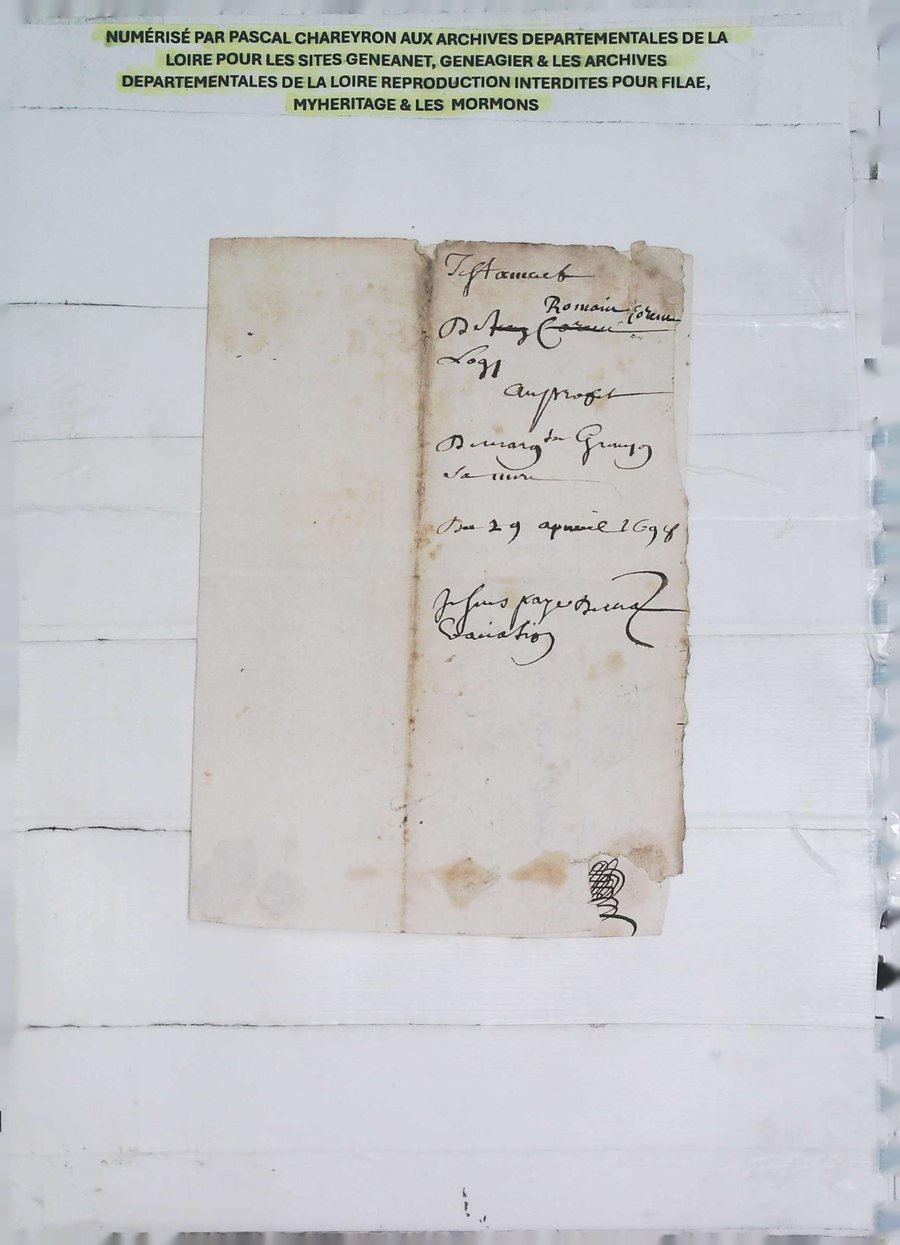 NUMÉRISÉ PAR PASCAL CHAREYRON AUX ARCHIVES DEPARTEMENTALES DE LA
LOIRE POUR LES SITES GENEANET, GENEAGIER & LES ARCHIVES
DEPARTEMENTALES DE LA LOIRE REPRODUCTION INTERDITES POUR FILAE,
MYHERITAGE & LES MORMONS
Testament
Romain
De
Au proffit
De marg
Sa mere
Du 29 apvril 1698
Je suis paye de ma
vacation